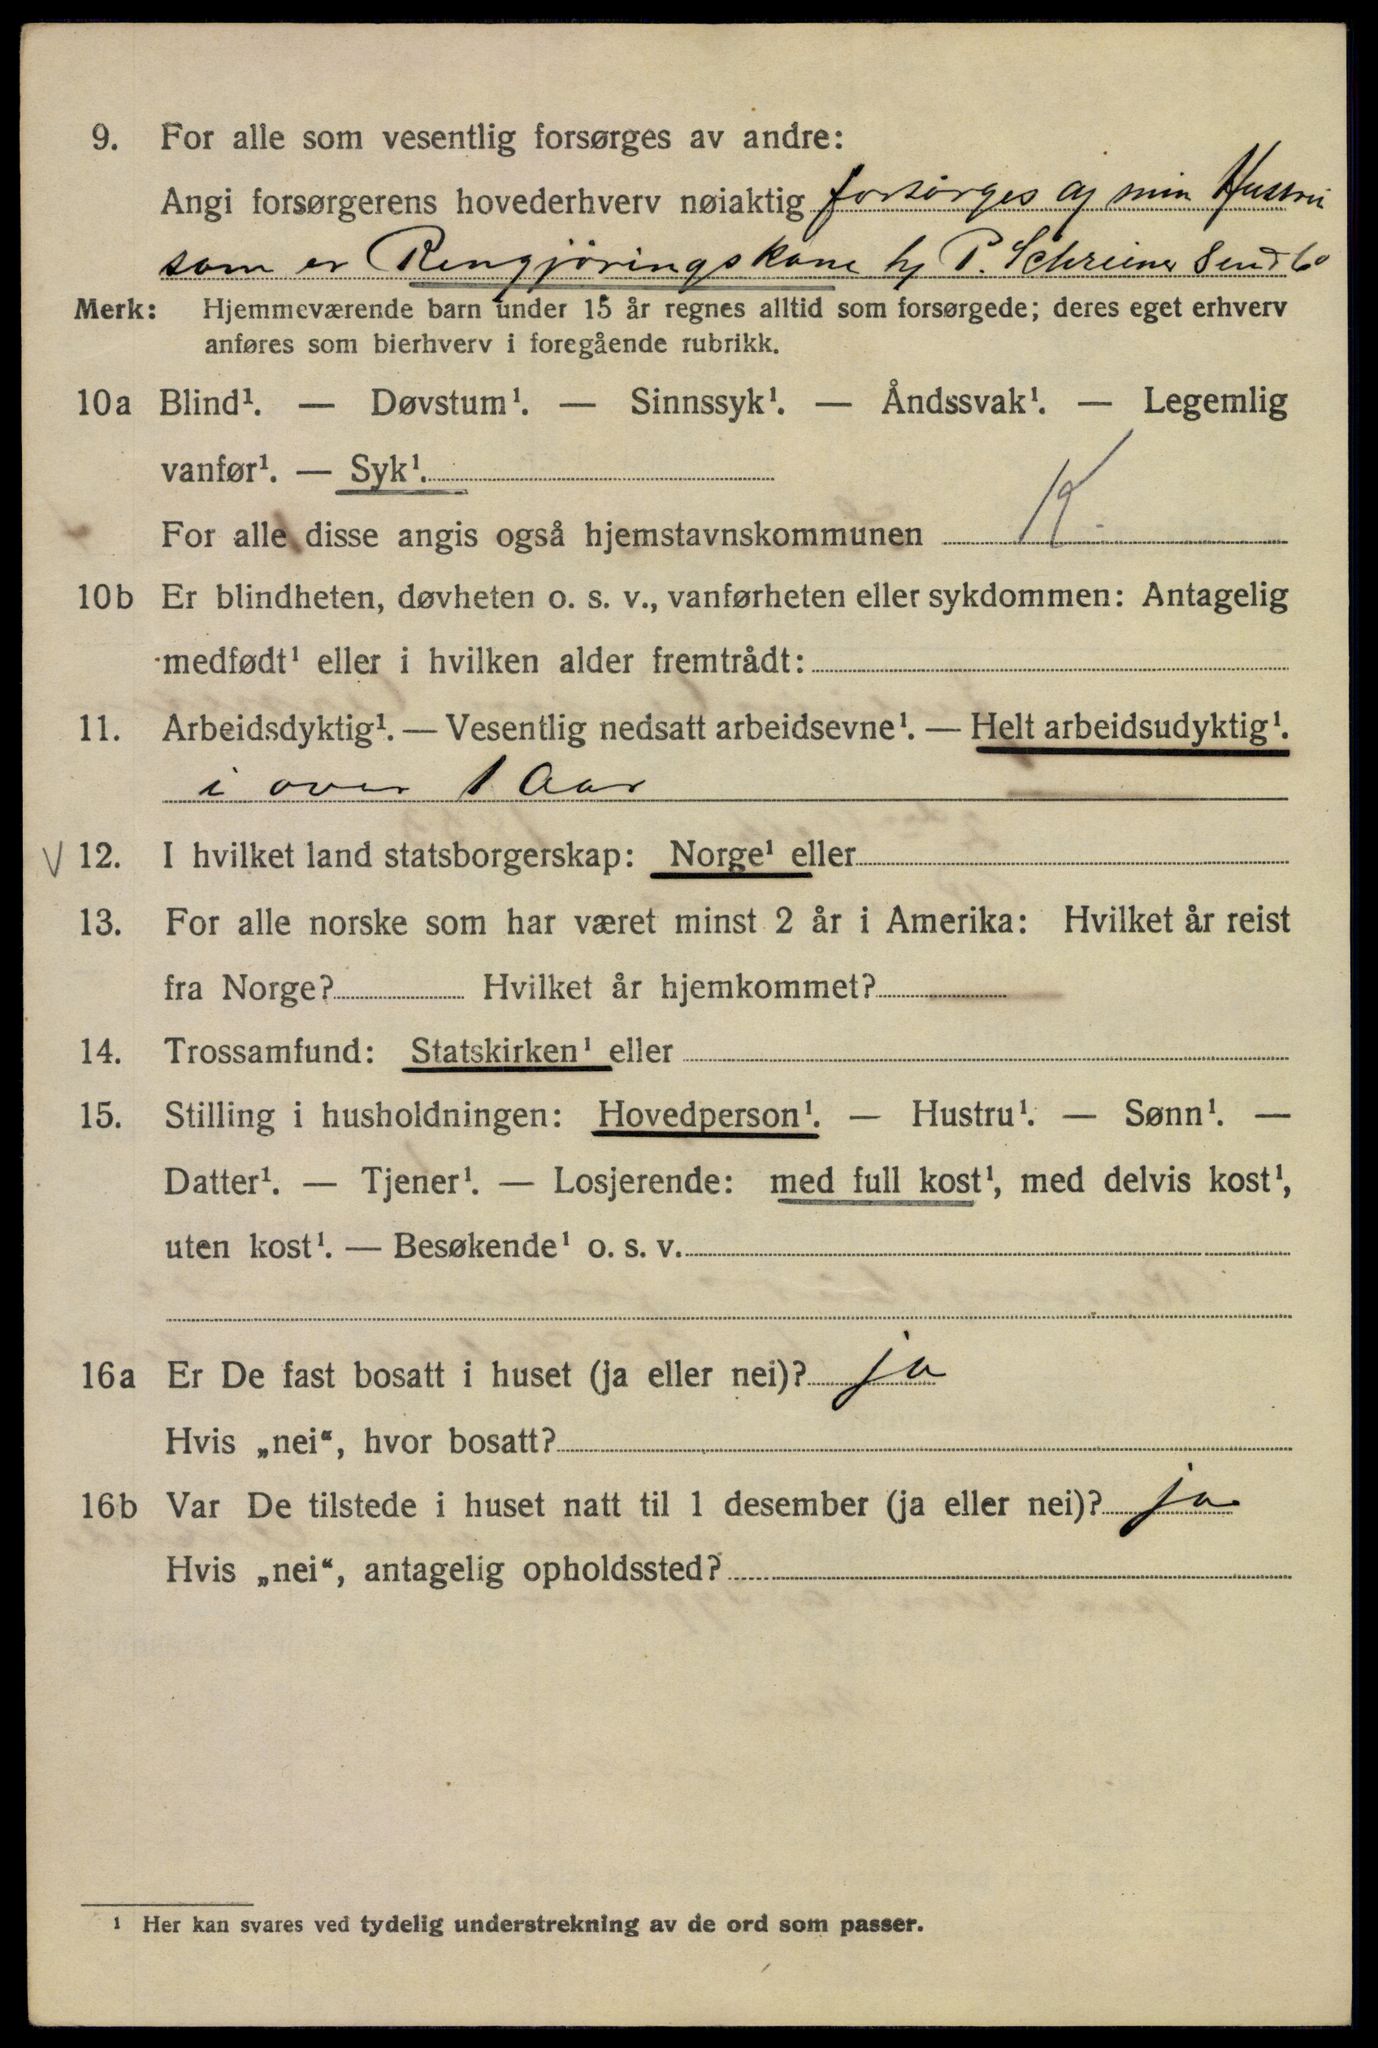 9. For alle som vesentlig forsørges av andre:
Angi forsørgerens hovederhverv nøiaktig forsørges af min Hustru
som er Rengjøringskone hj P. Schreiner Sen & Co
Merk: Hjemmeværende barn under 15 år regnes alltid som forsørgede; deres eget erhverv
anføres som bierhverv i foregående rubrikk.
10a Blind¹. — Døvstum¹. — Sinnssyk¹. — Åndssvak¹. — Legemlig
vanfør¹. — Syk¹.
For alle disse angis også hjemstavnskommunen K.
10b Er blindheten, døvheten o. s. v., vanførheten eller sykdommen: Antagelig
medfødt¹ eller i hvilken alder fremtrådt:
11. Arbeidsdyktig¹. — Vesentlig nedsatt arbeidsevne¹. — Helt arbeidsudyktig¹.
i over 1 Aar
V 12. I hvilket land statsborgerskap: Norge¹ eller
13. For alle norske som har været minst 2 år i Amerika: Hvilket år reist
fra Norge? Hvilket år hjemkommet?
14. Trossamfund: Statskirken¹ eller
15. Stilling i husholdningen: Hovedperson¹. — Hustru¹. — Sønn¹. —
Datter¹. — Tjener¹. — Losjerende: med full kost¹, med delvis kost¹,
uten kost¹. — Besøkende¹ o. s. v.
16a Er De fast bosatt i huset (ja eller nei)? ja
Hvis „nei“, hvor bosatt?
16b Var De tilstede i huset natt til 1 desember (ja eller nei)? ja
Hvis „nei“, antagelig opholdssted?
¹ Her kan svares ved tydelig understrekning av de ord som passer.